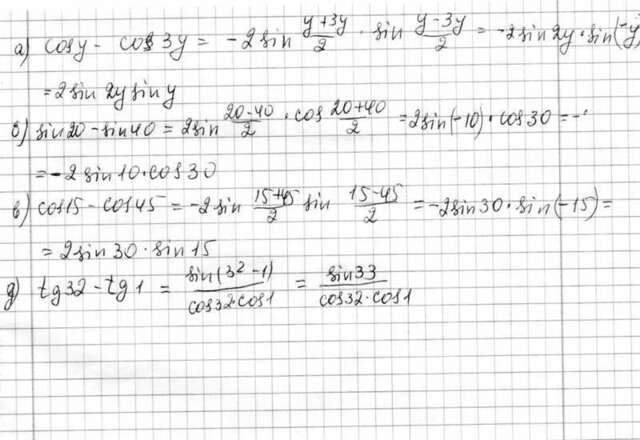 а) cos y - cos 3y = -2 sin (y+3y)/2 · sin (y-3y)/2 = -2 sin 2y · sin(-y)
= 2 sin 2y sin y
б) sin 20 - sin 40 = 2 sin (20-40)/2 · cos (20+40)/2 = 2 sin(-10) · cos 30 = -
= -2 sin 10 · cos 30
в) cos 15 - cos 45 = -2 sin (15+45)/2 sin (15-45)/2 = -2 sin 30 · sin(-15) =
= 2 sin 30 · sin 15
д) tg 32 - tg 1 = sin(32-1)/cos 32 · cos 1 = sin 33/cos 32 · cos 1